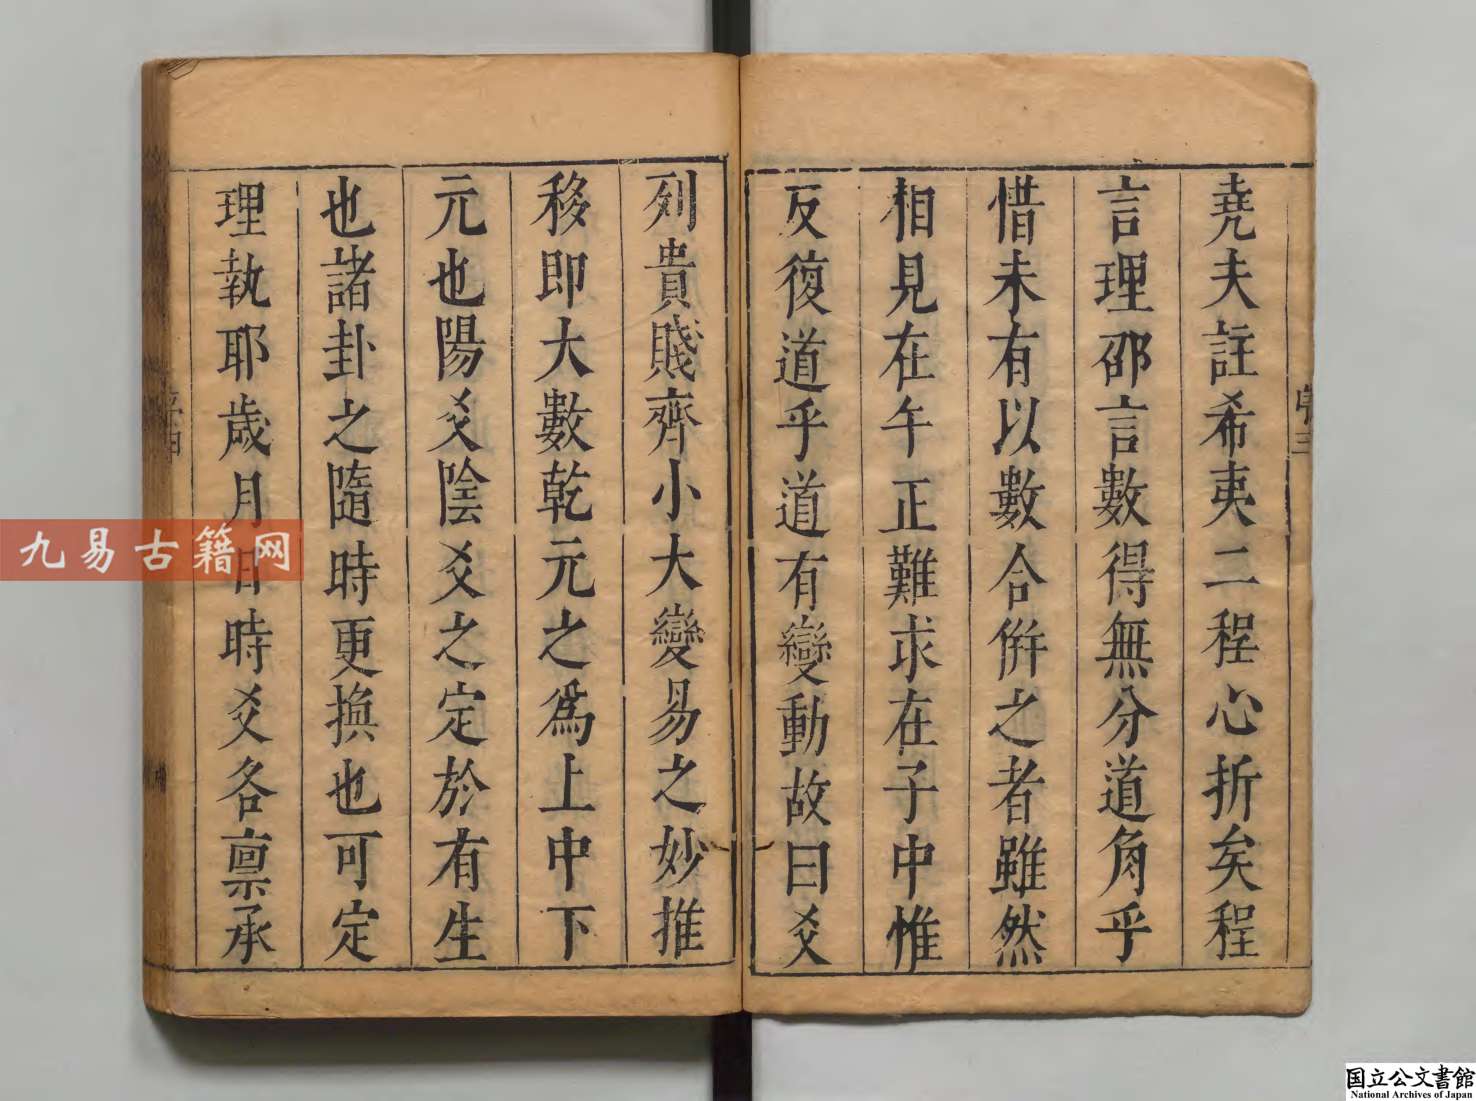 堯夫註希夷二程心折矣程
言理邵言數得無分道角乎
惜未有以數合併之者雖然
相見在午正難求在子中惟
反復道乎道有變動故曰爻
列貴賤齊小大變易之妙推
移即大數乾元之為上中下
元也陽爻陰爻之定於有生
也諸卦之隨時更換也可定
理執耶歲月日時爻各稟承
九易古籍网
国立公文書館
National Archives of Japan